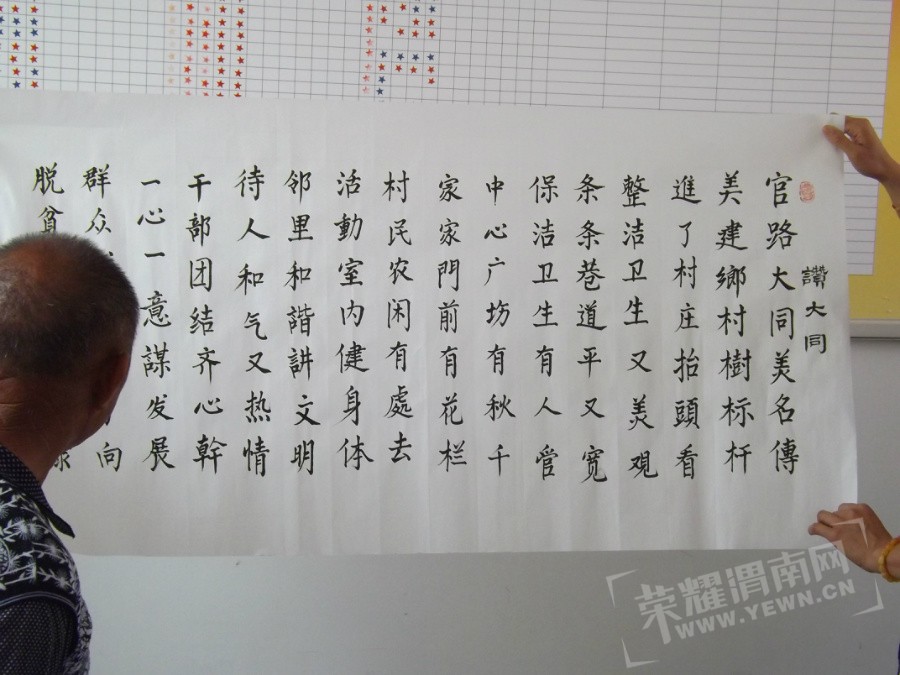 讚大同
官路大同美名傳
美建鄉村樹标杆
進了村庄抬頭看
整洁卫生又美观
条条巷道平又宽
保洁卫生有人管
中心广坊有秋千
家家門前有花栏
村民农闲有處去
活動室内健身体
邻里和諧讲文明
待人和气又热情
干部团结齐心幹
一心一意謀发展
群众向
脱贫
荣耀渭南网
WWW.YEWN.CN